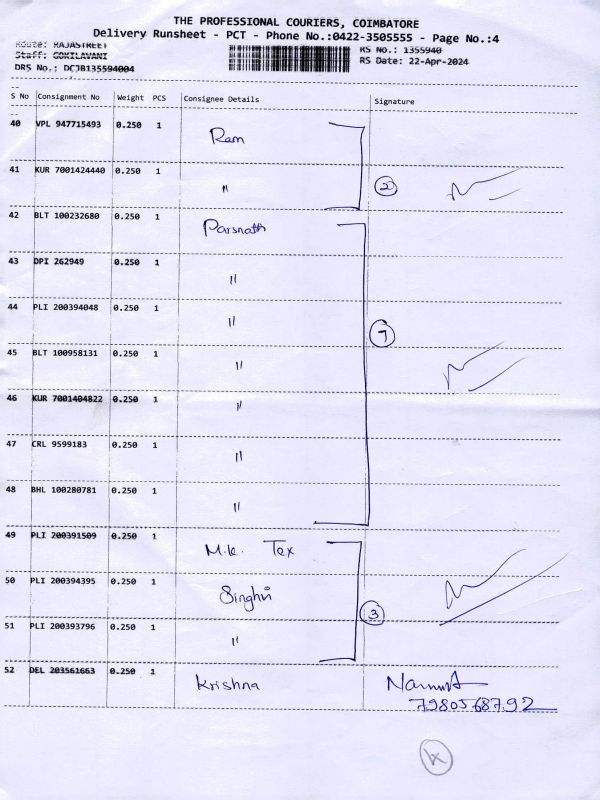 THE PROFESSIONAL COURIERS, COIMBATORE
Delivery Runsheet - PCT - Phone No.:0422-3505555 - Page No.:4
Route: RAJASTREET
Staff: GOKILAVANI
DRS No.: DCJB135594004
RS No.: 1355940
RS Date: 22-Apr-2024
S No Consignment No Weight PCS Consignee Details Signature
40 VPL 947715493 0.250 1 Ram
41 KUR 7001424440 0.250 1 〃 2
42 BLT 100232680 0.250 1 Parsnath
43 DPI 262949 0.250 1 〃
44 PLI 200394048 0.250 1 〃 7
45 BLT 100958131 0.250 1 〃
46 KUR 7001404822 0.250 1 〃
47 CRL 9599183 0.250 1 〃
48 BHL 100280781 0.250 1 〃
49 PLI 200391509 0.250 1 M.K. Tex
50 PLI 200394395 0.250 1 Singhvi
51 PLI 200393796 0.250 1 〃 3
52 DEL 203561663 0.250 1 Krishna